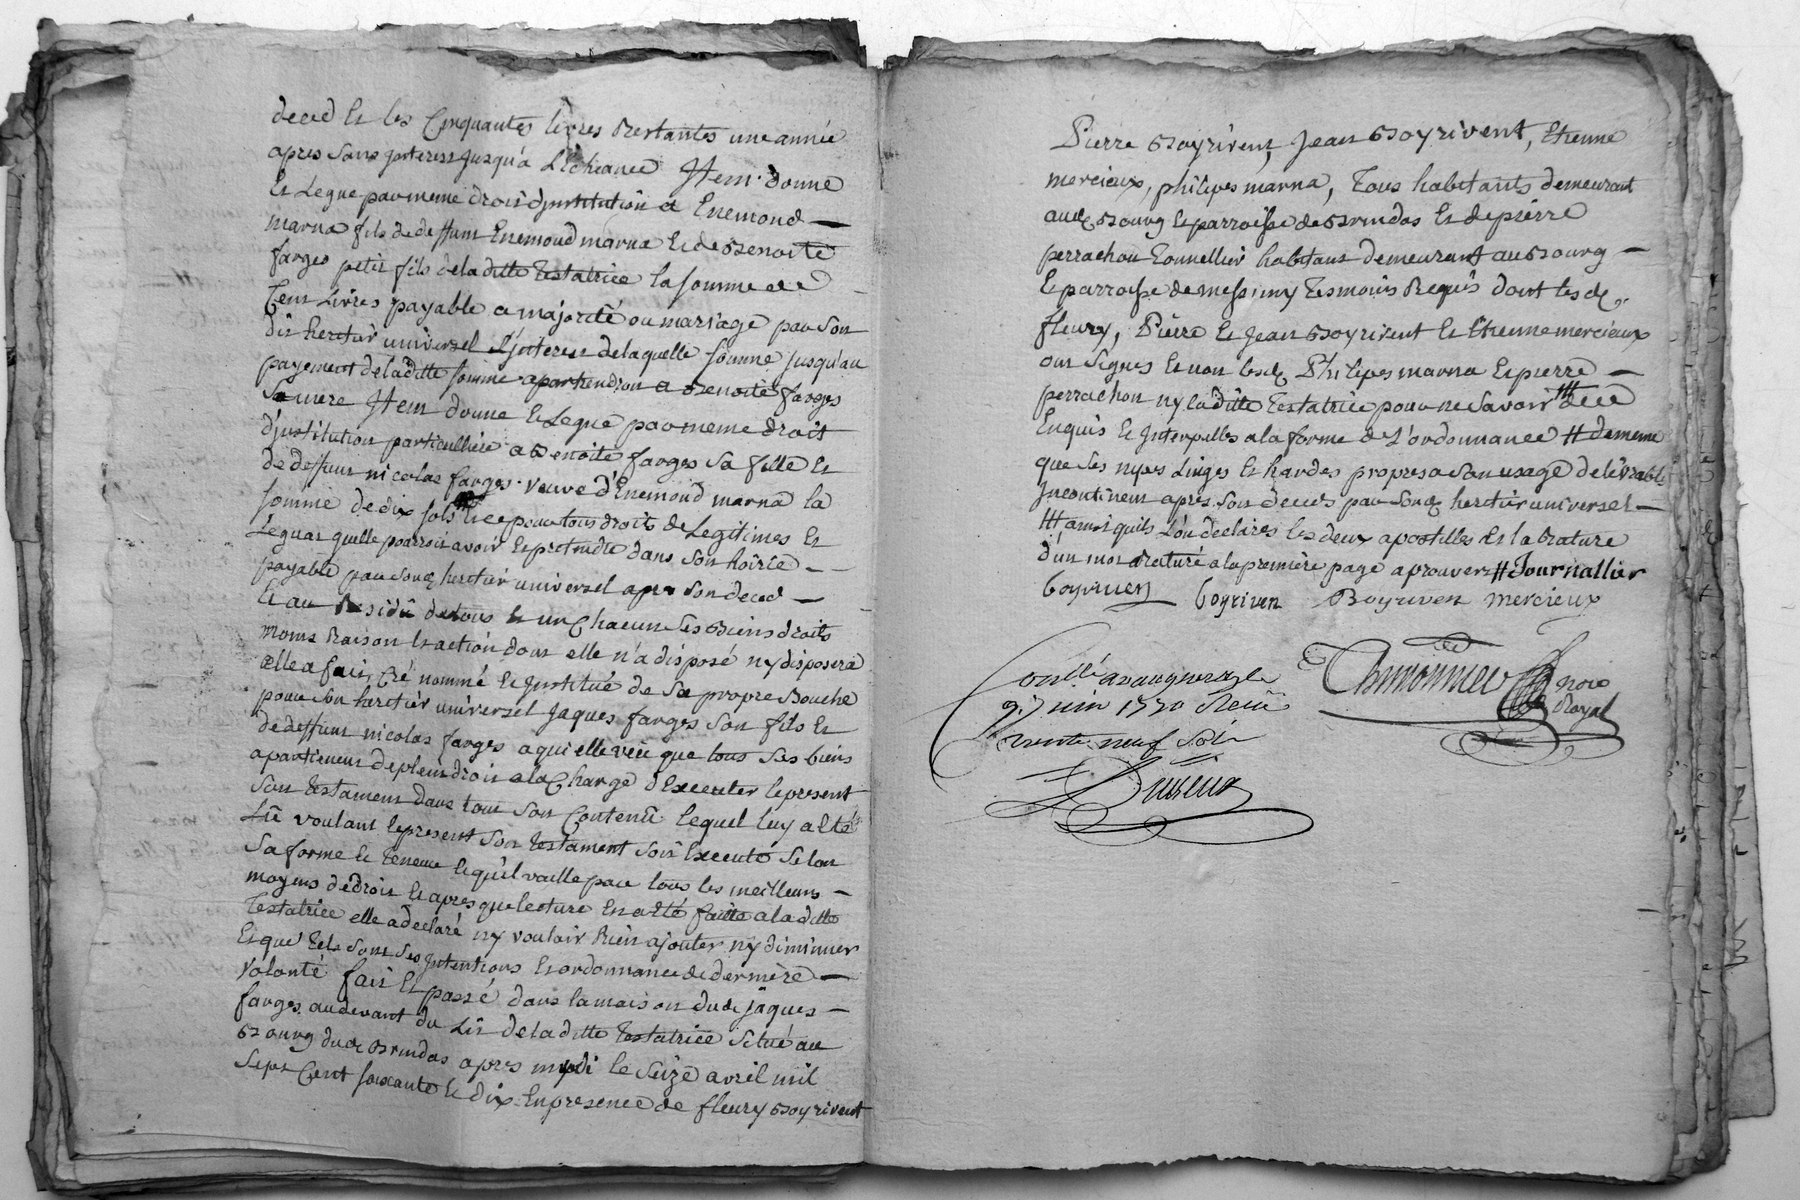 deced et les Cinquantes livres Restantes une année
apres Sans jnterest jusqu'a L'echeance jtem donne
et Legue par meme droit d'jnstitution a Enemond
marna fils de deffunt Enemond marna et de Benoite
farges petit fils de laditte testatrice la somme de
Cent Livres payable a majorité ou mariage par son
dit heretier universel l'jnterest de laquelle somme jusqu'au
payement de laditte somme apartiendront a Benoite farges
Sa mere jtem donne et Legue par meme droit
d'jnstitution particulliere a Benoite farges Sa fille et
de deffunt nicolas farges veuve d'Enemond marna la
somme de dix sols et ce pour tous droits de Legitimes et
Leguat quelle pourroit avoir et pretendre dans son hoirie
payable par sond heretier universel apres son deced
et au Residû de tous et un Chacuns ses Biens droits
noms Raison et action dont elle n'a disposé ny disposera
elle a fait, Créé nommé et jnstitué de Sa propre Bouche
pour son heretier universel jaques farges son fils et
de deffunt nicolas farges a qui elle veu que tous ses biens
apartienent de plein droit a la Charge d'Executer le present
son testament dans tout son Contenû lequel luy a été
Lû voulant le present son testament soit Executé selon
sa forme et teneur et qu'il vaille par tous les meilleurs
moyens de droit et apres que lecture en a été faitte a laditte
Testatrice elle a declaré ny vouloir Rien ajouter ny diminuer
Et que tels sont ses jntentions et ordonnance de derniere
volonté fait et passé dans la maison dud jaques
farges au devant du Lit de laditte testatrice Situé au
Bourg dud Brindas apres midi le Seize avril mil
Sept Cent soixante et dix En presence de fleury Boyrivent
Pierre Boyrivent, jean Boyrivent, Etienne
mercieux, philipes marna, Tous habitants demeurant
aud Bourg et parroisse de Brindas et de pierre
perrachon Tonnellier habitant demeurant au Bourg
et parroisse de messimy Tesmoins Requis dont lesd
fleury, Pierre et jean Boyrivent et Etienne mercieux
ont signes et non lesd Philipes marna et pierre
perrachon ny laditte testatrice pour ne savoir ### de ce
Enquis et jnterpelles a la forme de L'ordonnance # de meme
que ses nipes Linges et hardes propres a son usage delivrables
jncontinent apres son deced par sond heretier universel
### ainsi quils L'on declaires les deux apostilles et la Rature
d'un mot Raturé a la premiere page aprouver # journallier
boyriven boyriven Boyriven mercieux
Conllé a vaugneray le
9. juin 1770 Reçu
trente neuf sols
nore
Royal